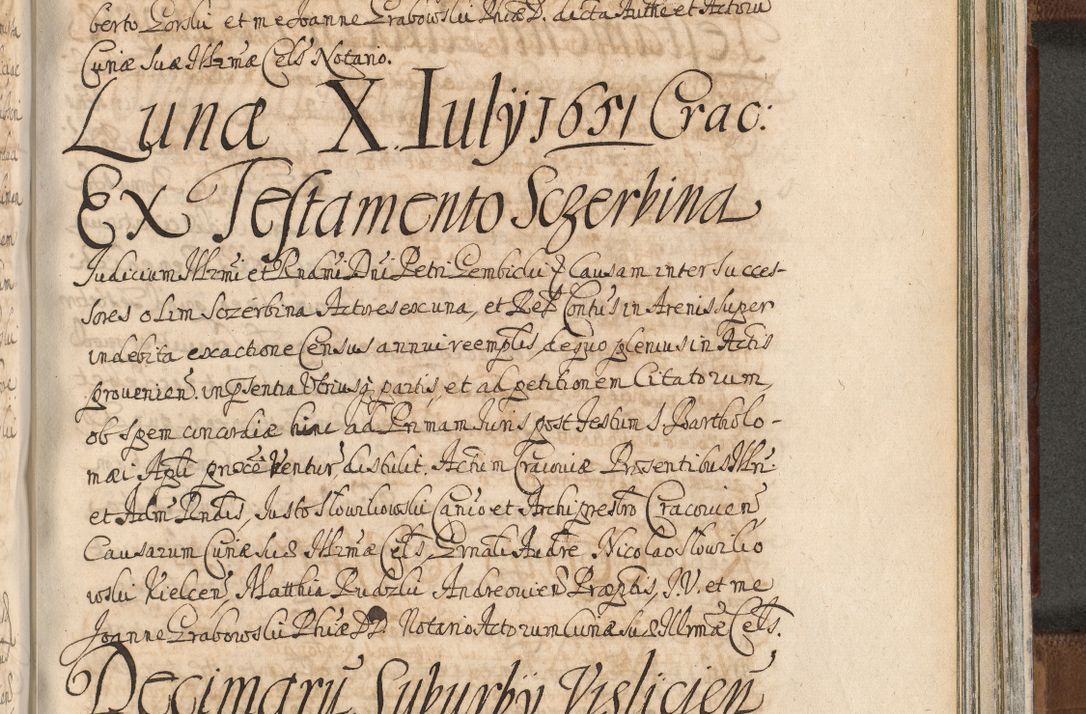 berto Gorski et me Joanne Grabowski Phiæ D. dicta Authe et Actoru
Curiæ suæ Illrmæ Cels Notario.
Lunæ X. Iulÿ 1651 Crac:
Ex Testamento Sczerbina
Judicium Illrmi et Rndmi Dni Petri Gembicki causam inter Succes-
sores olim Sczerbina Actores ex una, et Rel Contus in Arenis super
indebita exactione Census annui reemplis, de quo plenius in Actis
prouenien. in pſentia Vtriusq partis, et ad petitionem Citatorum,
ob spem concordiæ hinc ad Primam Iuris post Festum S. Bartholo-
mæi Apli proxe Ventur distulit. Actum Cracoviæ Præsentibus Illri
et Adm Rndis, Justo Slowikowski Canco et Archipresbro Cracouien,
Causarum Curiæ suæ Illrmæ Cels, Grnali Audre, Nicolao Slowiko
wski Kielcen, Matthia Rudzki Andreouien Præptis, I.V. et me
Joanne Grabowski Phiæ D. Notario Actorum Curiæ suæ Illrmæ Cels.
Decimarū Suburbÿ Visliciēn